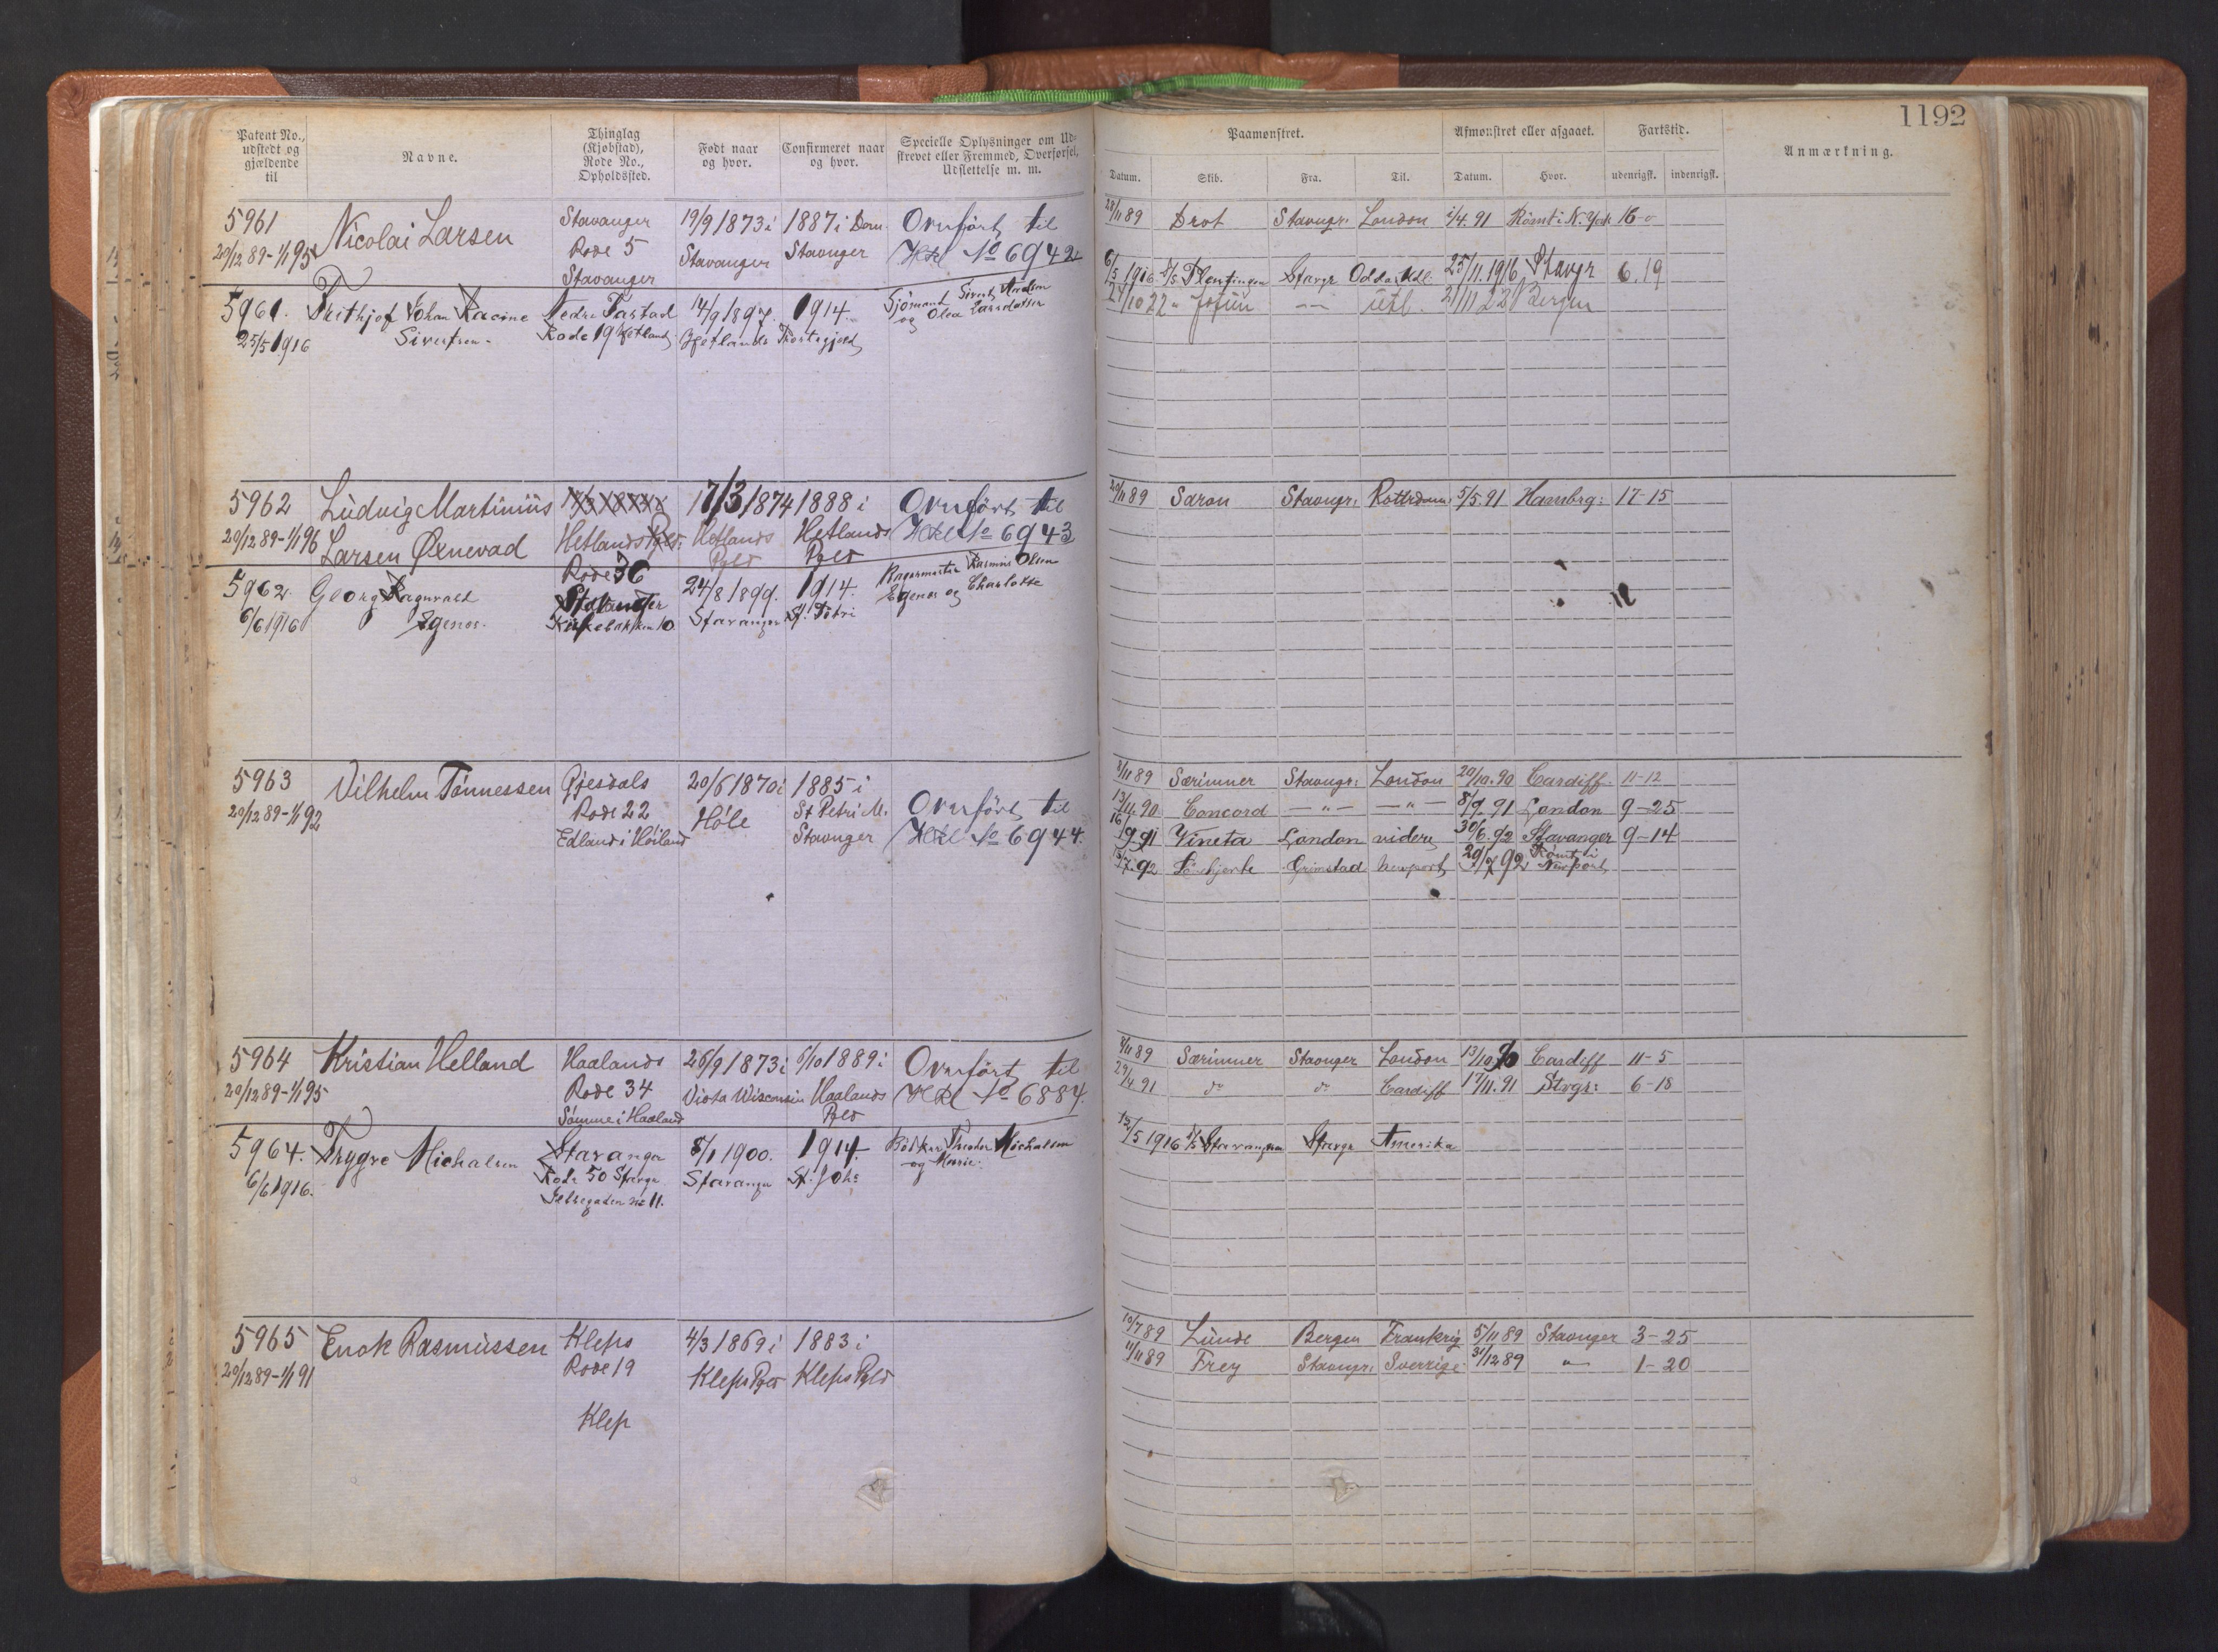 1192
Patent No., udstedt og gjældende til
Navne.
Thinglag (Kjøbstad), Rode No., Opholdssted.
Født naar og hvor.
Confirmeret naar og hvor.
Specielle Oplysninger om Udskrevet eller Fremmed, Overførsel, Udslettelse m. m.
Paamønstret.
Afmønstret eller afgaaet.
Fartstid.
Anmærkning.
Datum. Skib. Fra. Til. Datum. Hvor. udenrigsk. indenrigsk.
5961 Nicolai Larsen Stavanger 19/9 1873 i 1887 i Dom Overført til
20/12 89-1/1 95 Rode 5 Stavanger Stavanger No 6942
Stavanger
28/11 89 Drot Stavngr: London 2/4. 91 Römt i N. York 16-0
5961. Frithjof Johan Racine Nedre Tastad 14/9 1897. 1914. Sjømand Sivert
25/5 1916 Sivertsen. Rode 19 Hetland Hetlands og Olea
6/5 1916 D/S Stavgr Odda 25/11. 1916 Stavgr 6. 19
27/10 22 " Jøtun — Utl. 21/11 22 Bergen
5962 Ludvig Martinius 17/3 1874 1888 i Overført til
20/12 89-1/1 96 Larsen Øxnevad Hetlands Pgld: Hetlands Pgld Hetlands Pgld No 6943
Rode 36
Stavanger
29/11 89 Saron Stavngr: Rotterdam 5/5 91 Hambrg: 17-15
5962. Georg Ragnvald 24/8 1899. 1914. Rasmus Olsen
6/6 1916 Egenes. Kirkebakken 10 Stavanger St. Petri Egenes og Charlotte
5963 Vilhelm Tönnessen Gjesdals 20/6 1870 i 1885 i Overført til
20/12 89-1/1 92 Rode 22 Höle St Petri M. No 6944.
Edland i Höiland Stavnger
8/11 89 Særimner Stavngr: London 20/10. 90 Cardiff 11-12
13/11. 90 Concord — " — — " — 8/9. 91 London 9-25
16/9 91 Vineta London videre 30/6. 92 Stavanger 9-14
92 Grimstad Newport 29/7 92 Römt i Newport
5964 Kristian Helland Haalands 26/9 1873 i 6/10 1889 i Overført til
20/12 89-1/1 95 Rode 34 Viota Wisconsin Haalands Pgld No 6884.
Sömme i Haaland
8/11 89 Særimner Stavnger London 13/10 90 Cardiff 11-5
29/4. 91 do do Cardiff 17/11. 91 Stvgr: 6-18
5964. Trygve Michalsen Stavanger 8/1 1900. 1914. Bödker Theodor Michalsen
6/6 1916. Rode 50 Stavgr Stavanger St. Johs og Marie.
No 11.
15/5 1916 D/S Stavangeren Stavgr Amerika
5965 Enok Rasmussen Kleps 4/3 1869 i 1883 i
20/12 89-1/1 91 Rode 19 Kleps Pgld Kleps Pgld
Klep
10/7 89 Lunde Bergen Frankrig 5/11 89 Stavnger 3-25
11/11 89 Frey Stavngr: Sverrige 31/12 89 " 1-20